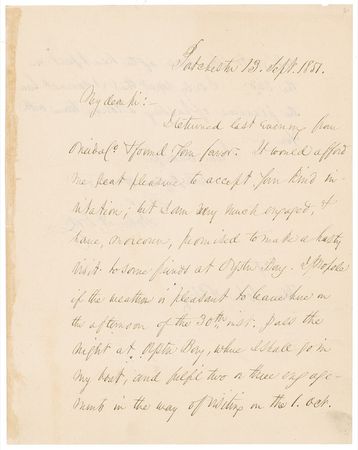 Patchester 13. Sept. 1851.
My dear sir:-
I returned last evening from
Oneida Co. & found your favor. It would afford
me great pleasure to accept your kind in-
vitation; but I am very much engaged, &
have, moreover, promised to make a hasty
visit to some friends at Oyster Bay. I propose
if the weather is pleasant to leave here on
the afternoon of the 30th inst. pass the
night at Oyster Bay, where I shall go in
my boat, and fulfil two or three engage-
ments in the way of visiting on the 1. Oct.